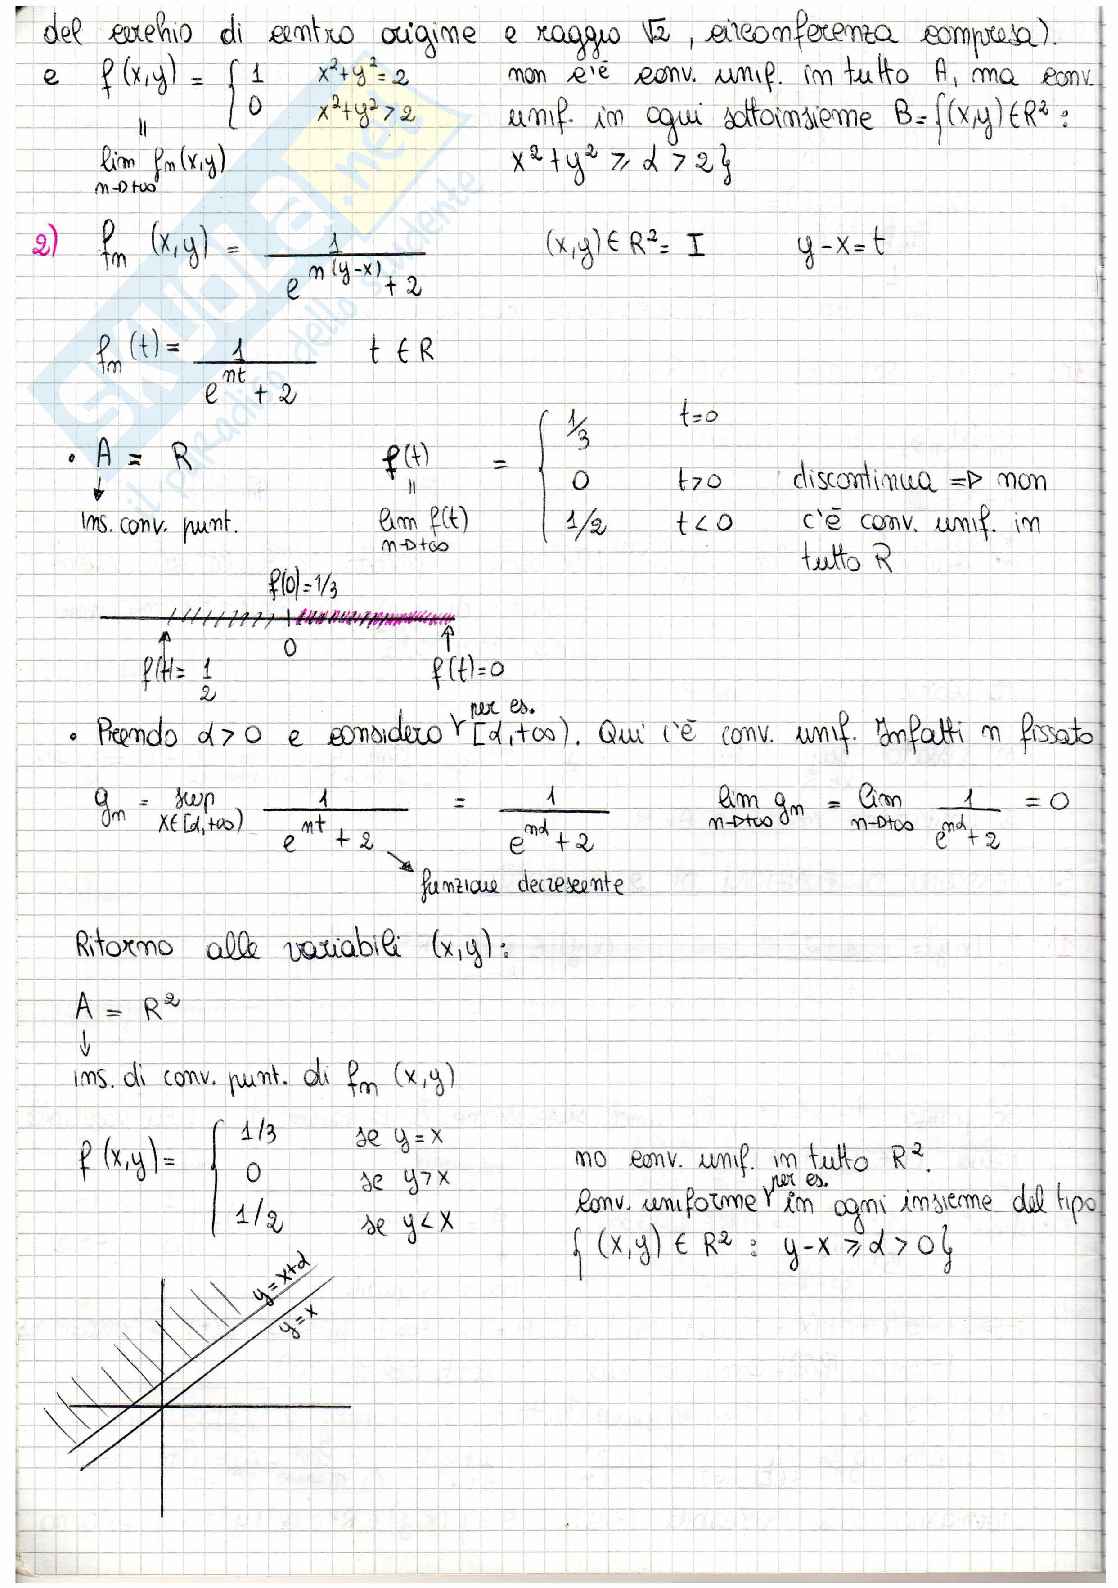 del cerchio di centro origine e raggio √2, circonferenza compresa).
e f(x,y) = { 1 x²+y²=2
0 x²+y²>2
||
lim fn(x,y)
n→+∞
non c'è conv. unif. in tutto A, ma conv.
unif. in ogni sottoinsieme B={(x,y)∈R²:
x²+y² ≥ α > 2}
2) fn (x,y) = 1 / (e^{n(y-x)} + 2) (x,y)∈R²=I y-x=t
fn(t) = 1 / (e^{nt} + 2) t∈R
• A = R f(t) = { 1/3 t=0
0 t>0
1/2 t<0
↓
ins. conv. punt.
||
lim f(t)
n→+∞
discontinua ⇒ non
c'è conv. unif. in
tutto R
f(0)=1/3
0
f(t)=1/2 f(t)=0
• Prendo α>0 e considero per es. [α,+∞). Qui c'è conv. unif. Infatti n fissato
gn = sup x∈[α,+∞) 1 / (e^{nt} + 2) = 1 / (e^{nα} + 2) lim n→+∞ gn = lim n→+∞ 1 / (e^{nα} + 2) = 0
funzione decrescente
Ritorno alle variabili (x,y):
A = R²
↓
ins. di conv. punt. di fn (x,y)
f(x,y)= { 1/3 se y=x
0 se y>x
1/2 se y<x
no conv. unif. in tutto R².
Conv. uniforme per es. in ogni insieme del tipo
{(x,y) ∈ R² : y-x ≥ α > 0}
y=x+α
y=x
SKUOLA.net
il paradiso dello studente